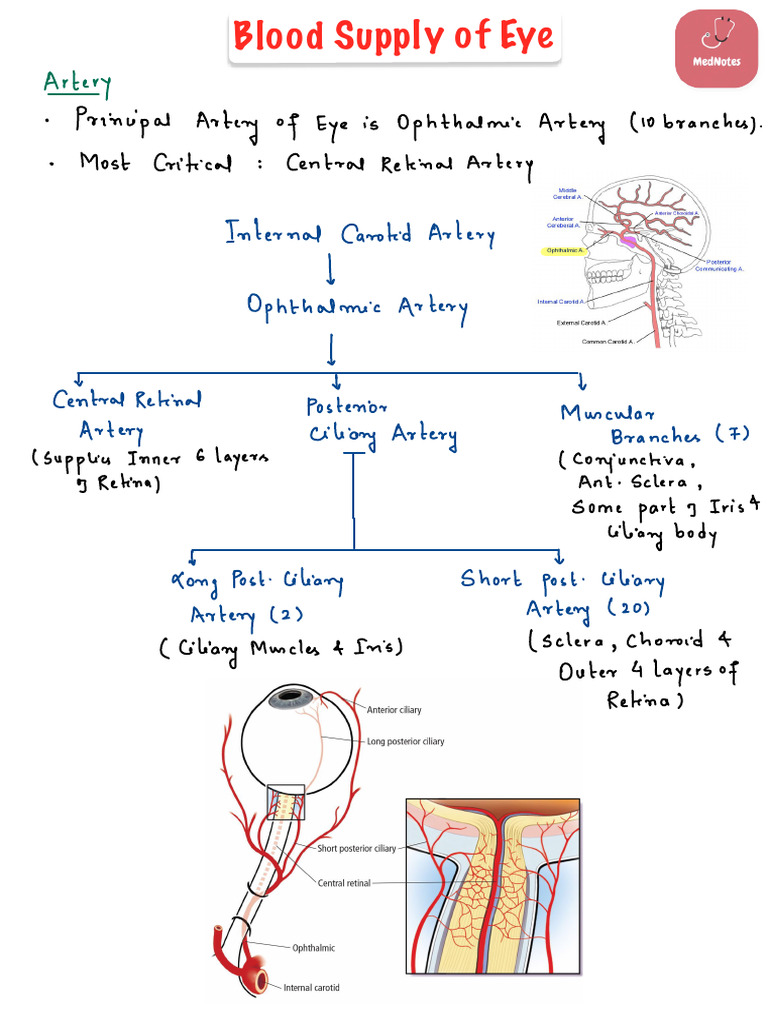 Blood Supply of Eye
MedNotes
Artery
• Principal Artery of Eye is Ophthalmic Artery (10 branches).
• Most Critical : Central Retinal Artery
Middle
Cerebral A.
Anterior
Cereberal A.
Anterior Choroidal A.
Ophthalmic A.
Posterior
Communicating A.
Internal Carotid A.
External Carotid A.
Common Carotid A.
Internal Carotid Artery
Ophthalmic Artery
Central Retinal
Artery
(Supplies Inner 6 layers
of Retina)
Posterior
Ciliary Artery
Muscular
Branches (7)
(Conjunctiva,
Ant. Sclera,
Some part of Iris &
Ciliary body
Long Post. Ciliary
Artery (2)
(Ciliary Muscles & Iris)
Short post. Ciliary
Artery (20)
(Sclera, Choroid &
Outer 4 layers of
Retina)
Anterior ciliary
Long posterior ciliary
Short posterior ciliary
Central retinal
Ophthalmic
Internal carotid